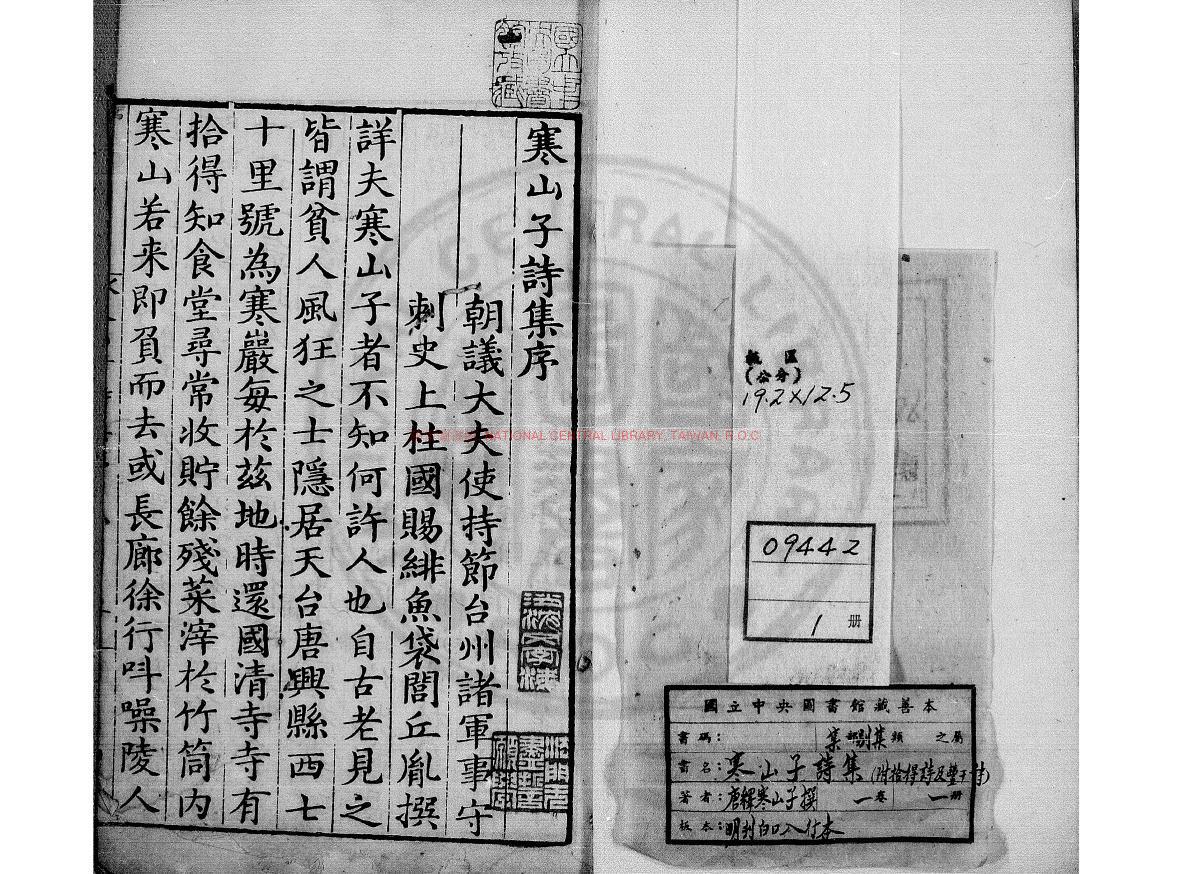 寒山子詩集序
朝議大夫使持節台州諸軍事守
刺史上柱國賜緋魚袋閭丘胤撰
詳夫寒山子者不知何許人也自古老見之
皆謂貧人風狂之士隱居天台唐興縣西七
十里號為寒巖每於茲地時還國清寺寺有
拾得知食堂尋常收貯餘殘菜滓於竹筒内
寒山若来即負而去或長廊徐行叫噪陵人
(公分)
19.2×12.5
09442
1 册
國立中央圖書館藏善本
書碼： 集部別集類 之屬
書名：寒山子詩集(附拾得詩及豐干詩)
著者：唐釋寒山子撰 一卷 一册
板本：明刊白口八行本
NATIONAL CENTRAL LIBRARY, TAIWAN, R.O.C